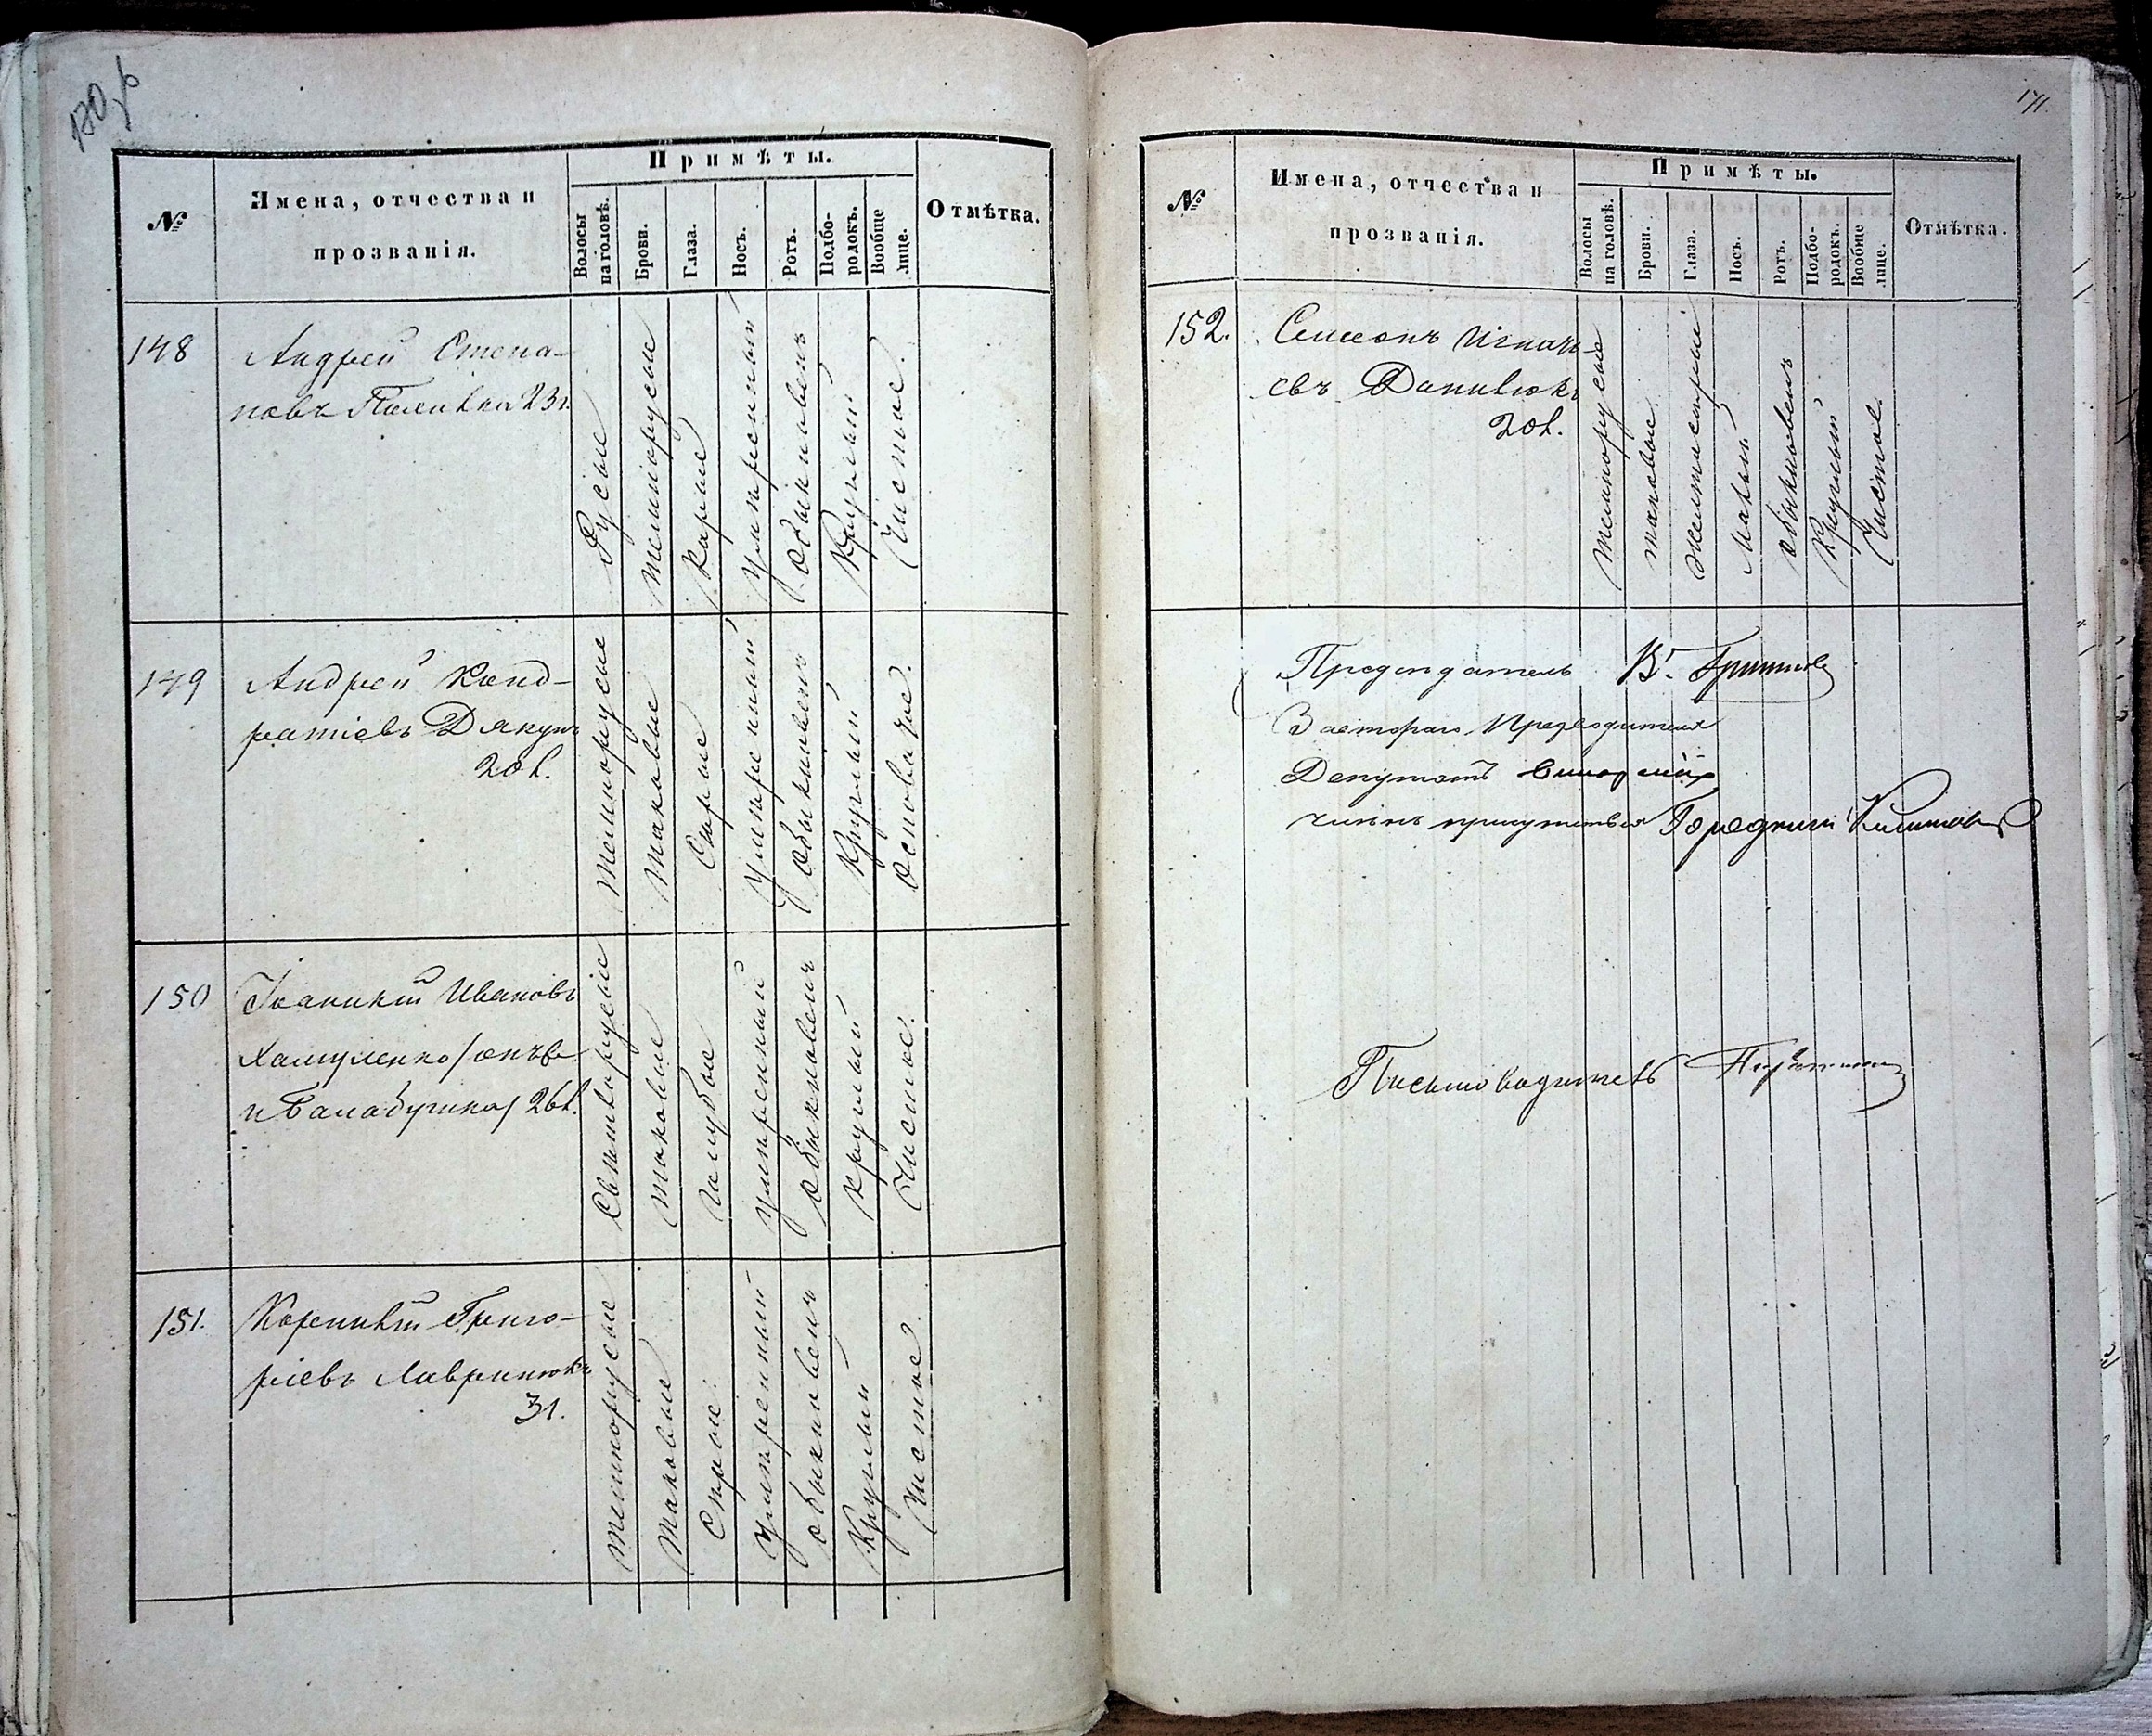 №
Имена, отчества и
прозванія.
Примѣты.
Волосы
на головѣ.
Брови.
Глаза.
Носъ.
Ротъ.
Подбо-
родокъ.
Вообще
лице.
Отмѣтка.
148
Андрей Степа-
новъ 23
Русые
темнорусые
Каріе
умѣренный
обыкновенъ
Круглый
Чистое.
149
Андрей Конд-
ратіевъ Дякунъ
20 л.
темнорусые
таковые
Сѣрые
умѣренный
обыкновенъ
Круглый
150
Іоаникій Ивановъ
Хамуленко / онъ же
и Балабушка / 26 л.
Свѣтлорусые
таковые
голубые
умѣренный
обыкновенъ
круглый
Чистое.
151.
Григо-
ріевъ Лавринюкъ
31.
темнорусые
таковые
Сѣрые
умѣренный
обыкновенъ
Круглый
Чистое.
171.
№
Имена, отчества и
прозванія.
Примѣты.
Волосы
на головѣ.
Брови.
Глаза.
Носъ.
Ротъ.
Подбо-
родокъ.
Вообще
лице.
Отмѣтка.
152.
Семенъ Игнать-
евъ Данилюкъ
20 л.
темнорусые
таковые
желтосѣрые
Малый
обыкновенъ
Круглый
Чистое.
Предсѣдатель В.
Предводителя
Депутатъ
Городничій
Письмоводитель